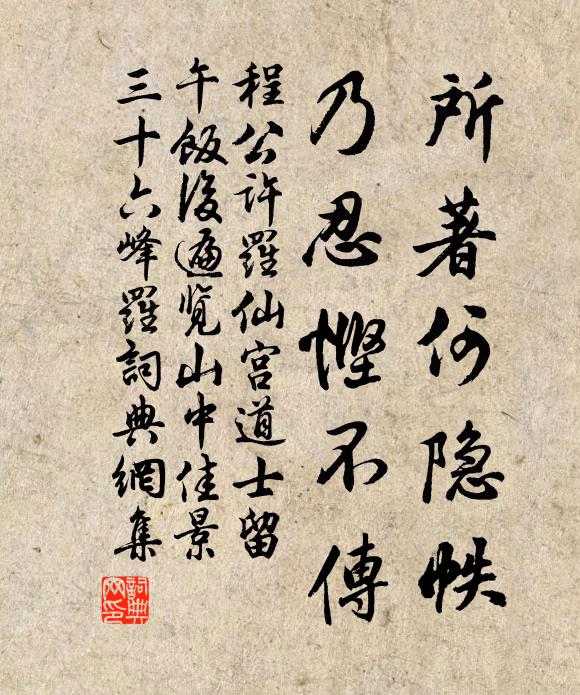 所著何隐帙
乃忍慳不傳
程公许羅仙宫道士留
午飯後遍覽山中佳景
三十六峰羅詞典網集
詞典网印